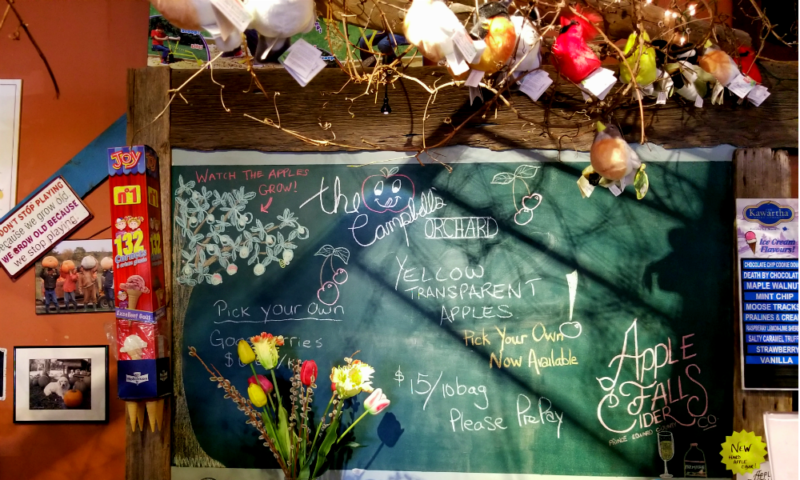 DON'T STOP PLAYING
because we grow old
WE GROW OLD BECAUSE
we stop playing.
JOY
nº1
132
WATCH THE APPLES
GROW!
the
Campbell's
ORCHARD
Pick your Own
YELLOW
TRANSPARENT
APPLES
Pick Your Own
Now Available
$15/10bag
Please PrePay
Apple
Falls
Cider
Co
Kawartha
Ice Cream
Flavours!
CHOCOLATE CHIP COOKIE
DEATH BY CHOCOLAT
MAPLE WALNUT
MINT CHIP
MOOSE TRACKS
PRALINES & CREA
SALTY CARAMEL TRUFF
STRAWBERRY
VANILLA
NEW
HARD
APPLE